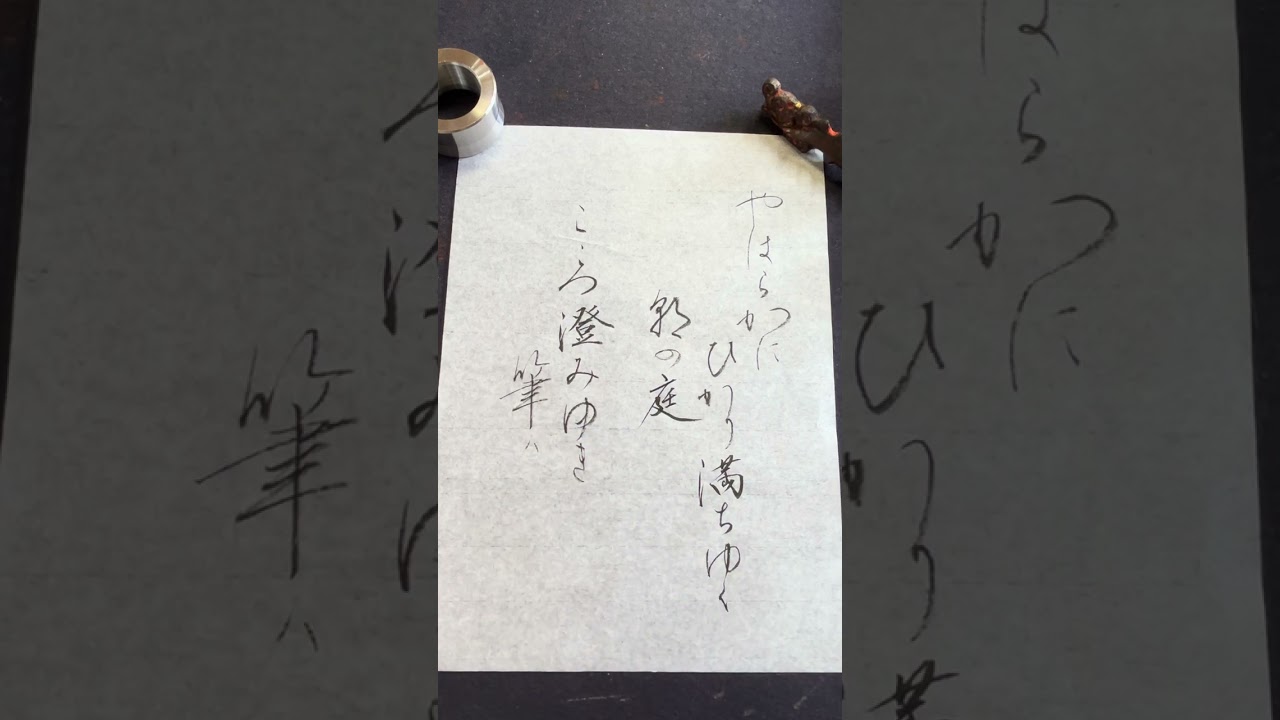 やはらかに
ひかり満ちゆく
朝の庭
こゝろ澄みゆき
筆ハ